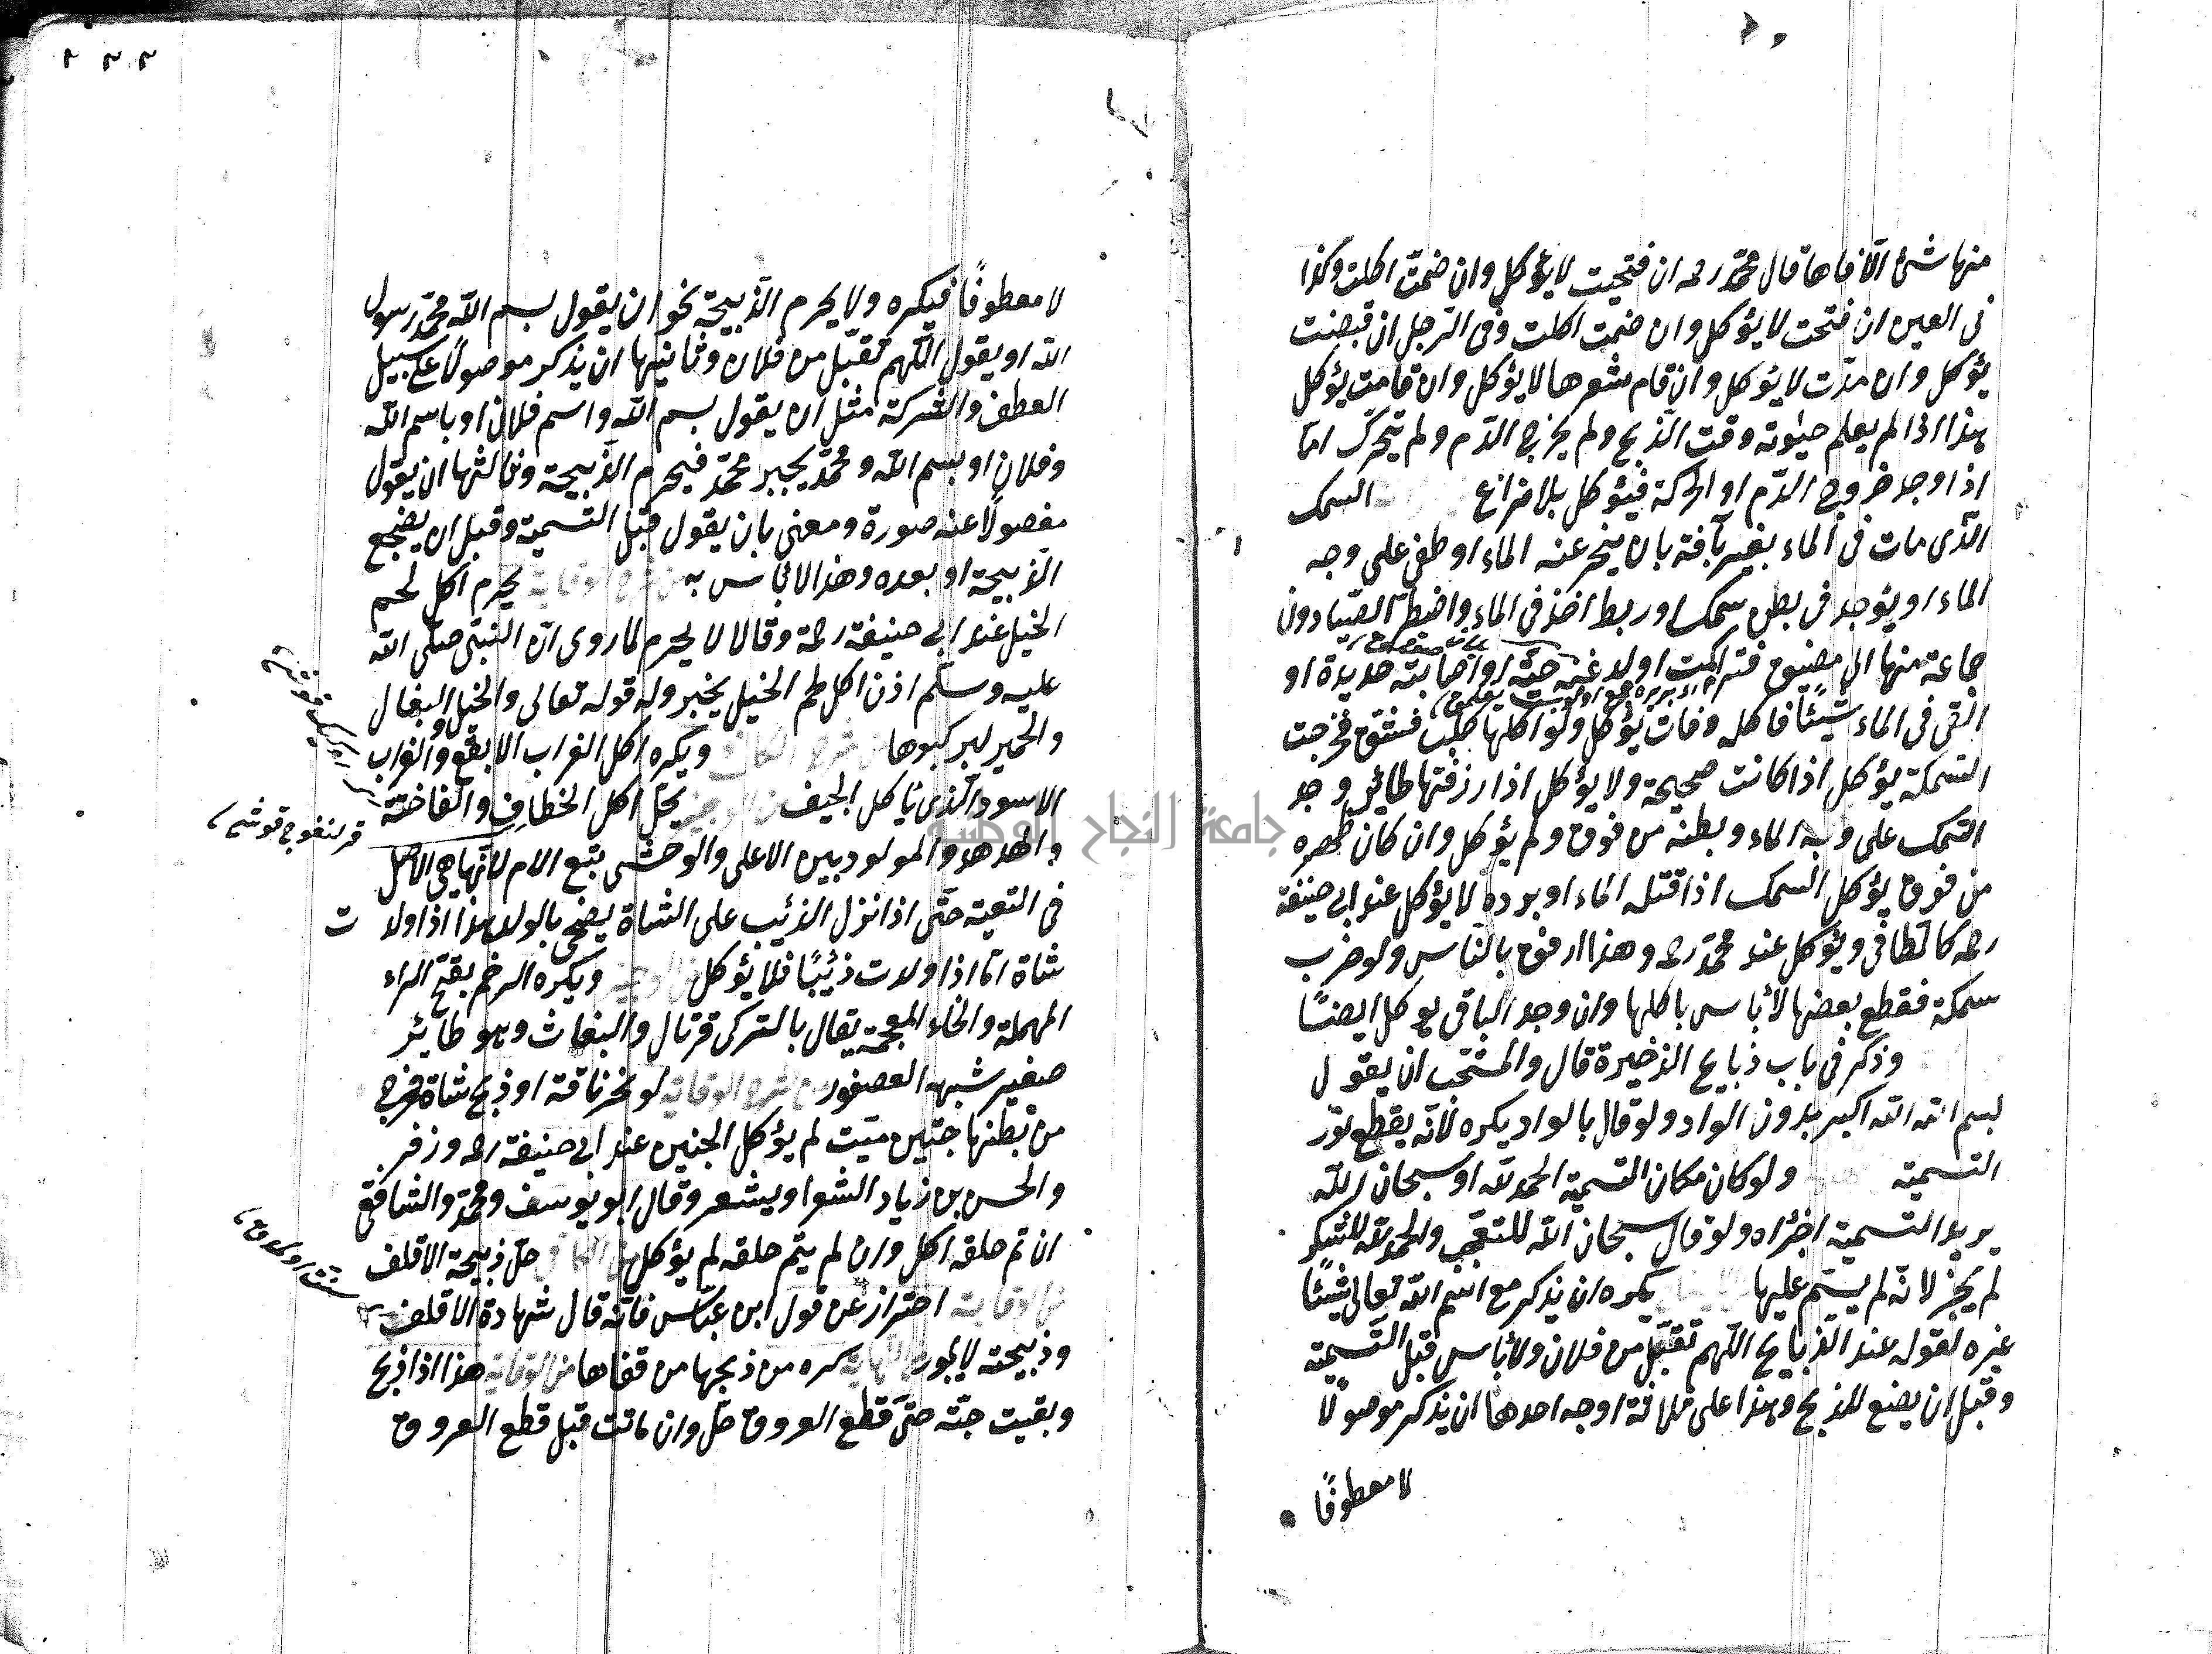 منها شئ الا فاها قال محمد رحه ان فتحت لا يؤكل وان ضمت اكلت وكذا
فى العين ان فتحت لا يؤكل وان ضمت اكلت وفى الرجل ان قبضت
يؤكل وان مدت لا يؤكل وان قام شعرها لا يؤكل وان قامت يؤكل
هذا اذا لم يعلم حيوته وقت الذبح ولم يخرج الدم ولم يتحرك اما
اذا وجد خروج الدم او الحركة فيؤكل بلا نزاع السمك
الذى مات فى الماء بغير آفة بان ينحر عنه الماء او طفى على وجه
الماء او يؤجد فى بطن سمك او ربط اخذ فى الماء واضطر الصيادون
جماعة منها الى مضيق فتراكمت او لدغته حية او اصابته حديدة او
القى فى الماء شيئا فاكله وفات يؤكل ولو اكلها كلب فشق فخرجت
السمكة يؤكل اذا كانت صحيحة ولا يؤكل اذا رزقتها طائر وجد
السمك على وجه الماء وبطنه من فوق ولم يؤكل وان كان ظهره
من فوق يؤكل السمك اذا قتله الماء او برده لا يؤكل عند ابى حنيفة
رحه كالطافى ويؤكل عند محمد رحه وهذا ارفق بالناس ولو ضرب
سمكة فقطع بعضها لا بأس باكلها وان وجد الباقى يؤكل ايضا
وذكر فى باب ذبايح الذخيرة قال والمستحب ان يقول
بسم الله الله اكبر بدون الواو ولو قال بالواو يكره لانه يقطع نور
التسمية ولو كان مكان التسمية الحمد لله او سبحان الله
يريد التسمية اجزاه ولو قال سبحان الله للتعجب والحمد لله للشكر
لم يجز لانه لم يسم عليها يكره ان يذكر مع اسم الله تعالى شيئا
غيره لقوله عند الذبايح اللهم تقبل من فلان ولا بأس قبل التسمية
وقبل ان يضع للذبح وهذا على ثلاثة اوجه احدها ان يذكر موصولا
لا معطوفا
لا معطوفا فيكره ولا يحرم الذبيحة نحو ان يقول بسم الله محمد رسول
الله او يقول اللهم تقبل من فلان وثانيها ان يذكر موصولا على سبيل
العطف والشركة مثل ان يقول بسم الله واسم فلان او باسم الله
وفلان او بسم الله ومحمد يجبر محمد فيحرم الذبيحة وثالثها ان يقول
مفصولا عنه صورة ومعنى بان يقول قبل التسمية وقبل ان يضجع
الذبيحة او بعده وهذا لا بأس به يحرم اكل لحم
الخيل عند ابى حنيفة رحه وقالا لا يحرم لما روى ان النبى صلى الله
عليه وسلم اذن اكل لحم الخيل بخيبر وله قوله تعالى والخيل والبغال
والحمير لتركبوها ويكره اكل الغراب الابقع والغراب
الاسود الذى يأكل الجيف يحل اكل الخطاف والفاختة
والهدهد والمولود بين الاهلى والوحشى يتبع الام لانها هى الاصل
فى التبعية حتى اذا نزل الذئب على الشاة يضحى بالولد هذا اذا ولدت
شاة اما اذا ولدت ذئبا فلا يؤكل ويكره الرخم بفتح الراء
المهملة والخاء المعجمة يقال بالتركى قرتال والبغاث وهو طائر
صغير شبهه العصفور من شرح الوقاية لو نحر ناقة او ذبح شاة فخرج
من بطنها جنين ميت لم يؤكل الجنين عند ابى حنيفة رحه وزفر
والحسن بن زياد اشعر او لم يشعر وقال ابو يوسف ومحمد والشافعى
ان تم خلقه اكل وان لم يتم خلقه لم يؤكل حل ذبيحة الاقلف
احتراز عن قول ابن عباس فانه قال شهادة الاقلف
وذبيحته لا يجوز كره من ذبحها من قفاها من الوقاية هذا اذا ذبح
وبقيت حية حتى قطع العروق حل وان ماتت قبل قطع العروق
جامعة النجاح الوطنية